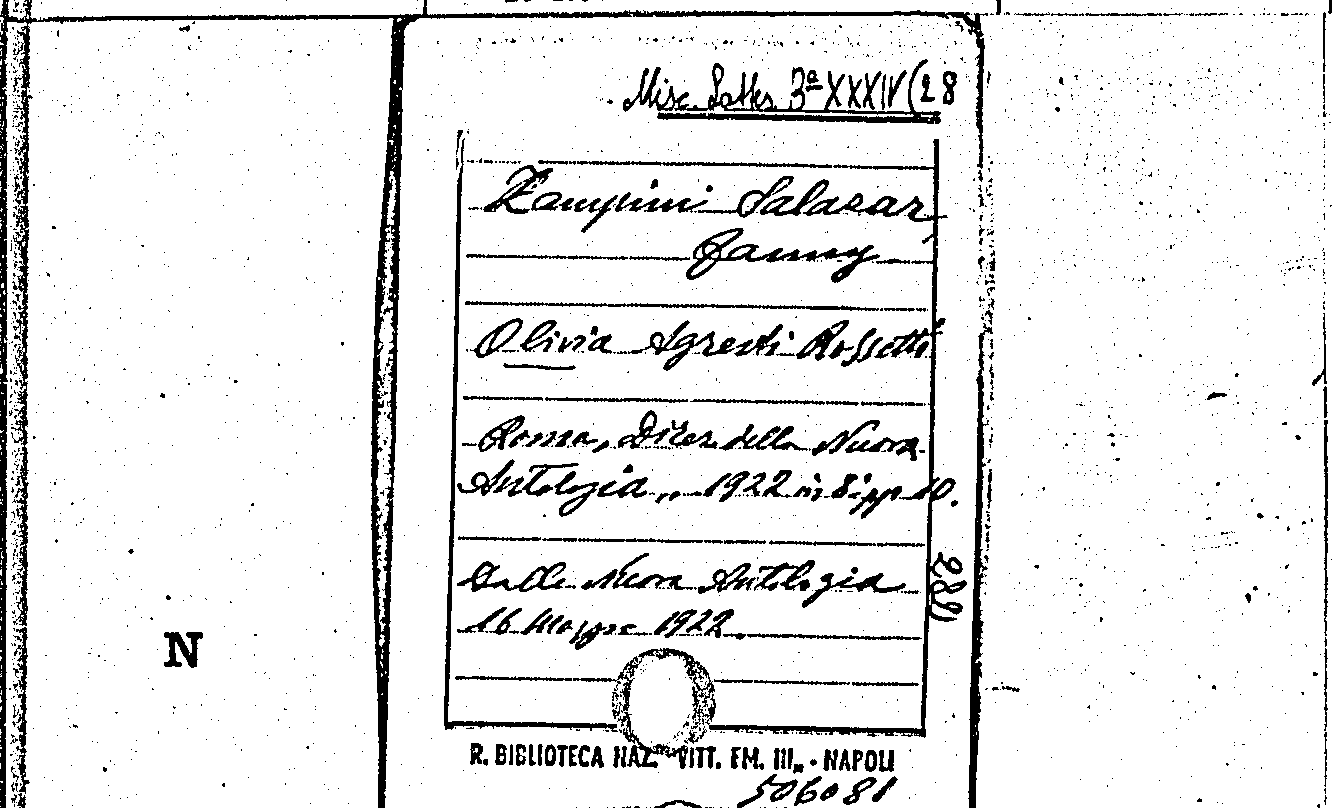 Misc. Letter. 3ª XXXIV (28
Zampini Salazar,
Fanny
Olivia Agresti Rossetti
Roma, Direz. della Nuova
Antologia,, 1922 in 8° pp 10.
Dalla Nuova Antologia
16 Maggio 1922.
289)
N
R. BIBLIOTECA NAZ. VITT. EM. III„ - NAPOLI
506081